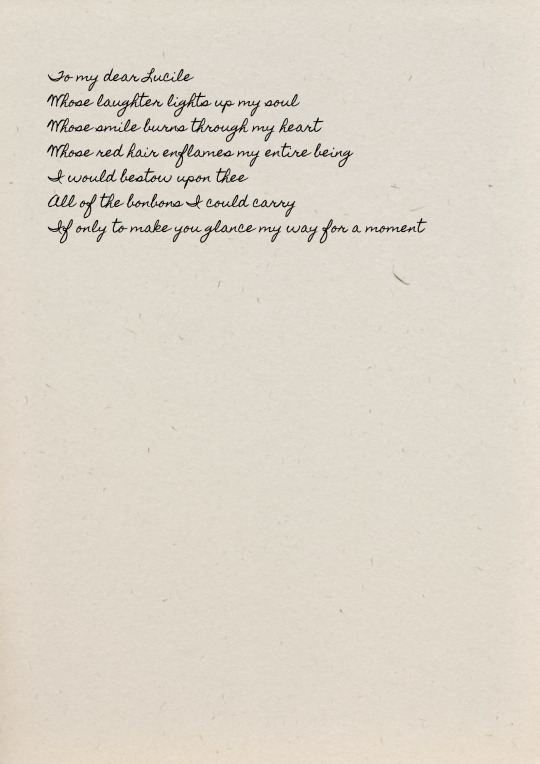 To my dear Lucile
Whose laughter lights up my soul
Whose smile burns through my heart
Whose red hair enflames my entire being
I would bestow upon thee
All of the bonbons I could carry
If only to make you glance my way for a moment